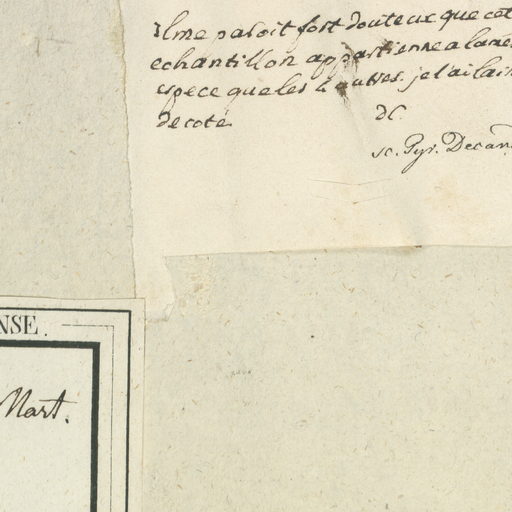 Il me paroit fort douteux que cet
echantillon appartienne a la mem
espece que les 2 autres. je l'ai lais
de coté.
DC.
sc. Pyr. Decan
NSE.
Mart.